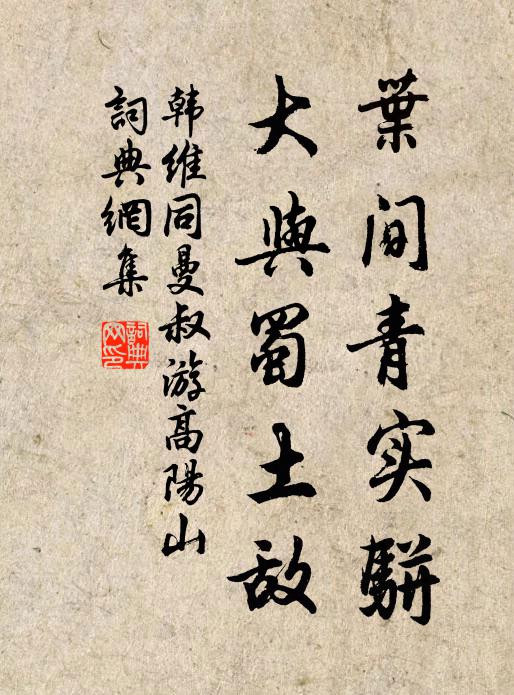 葉間青实駢
大與蜀土敌
韩維同曼叔游高陽山
詞典網集
詞典网印